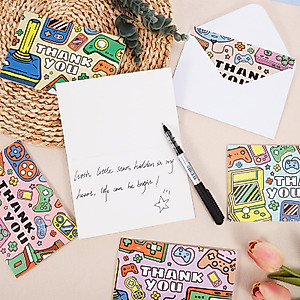 THANK
YOU
THANK
YOU
with little stars hidden in my
heart, life can be bright!
THANK
YOU
THANK
YOU
THANK
YOU